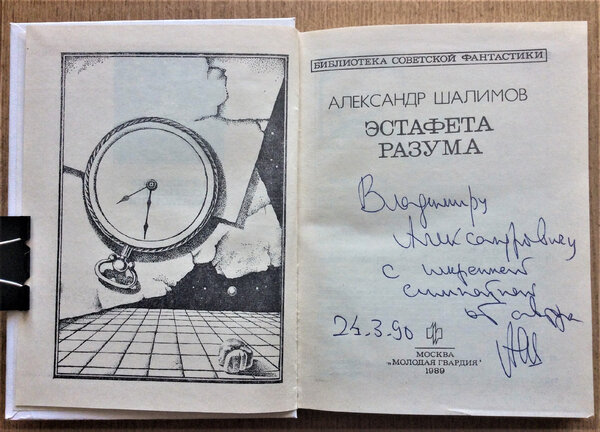 БИБЛИОТЕКА СОВЕТСКОЙ ФАНТАСТИКИ
АЛЕКСАНДР ШАЛИМОВ
ЭСТАФЕТА
РАЗУМА
Владимиру
Александровичу
с искренней
симпатией
от автора
24.3.90
МОСКВА
„МОЛОДАЯ ГВАРДИЯ"
1989